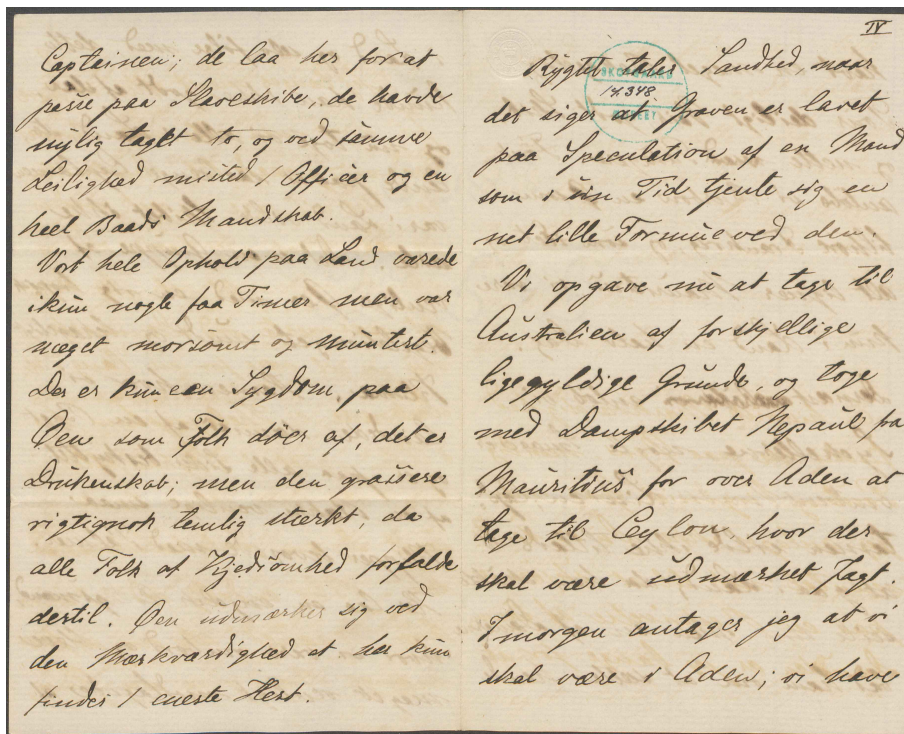 Captainen; de laa her for at
passe paa Slaveskibe, de havde
nylig taget to, og ved samme
Leilighed misted 1 Officer og en
heel Baads Mandskab.
Vort hele Ophold paa Land varede
ikun nogle faa Timer men var
meget morsomt og muntert.
Der er kun een Sygdom paa
Øen som Folk döer af, det er
Drukenskab; men den grassere
rigtignok temlig stærkt, da
alle Folk af Kjedsomhed forfalde
dertil. Øen udmærker sig ved
den Mærkværdighed at her kun
findes 1 eneste Hest.
IV
Rygtet taler Sandhed, naar
14348
det siger at Graven er lavet
paa Speculation af en Mand
som i sin Tid tjente sig en
net lille Formue ved den.
Vi opgave nu at tage til
Australien af forskjellige
ligegyldige Grunde, og toge
med Dampskibet Nepaul fra
Mauritius for over Aden at
tage til Ceylon, hvor der
skal være udmærket Jagt.
Imorgen antager jeg at vi
skal være i Aden; vi have